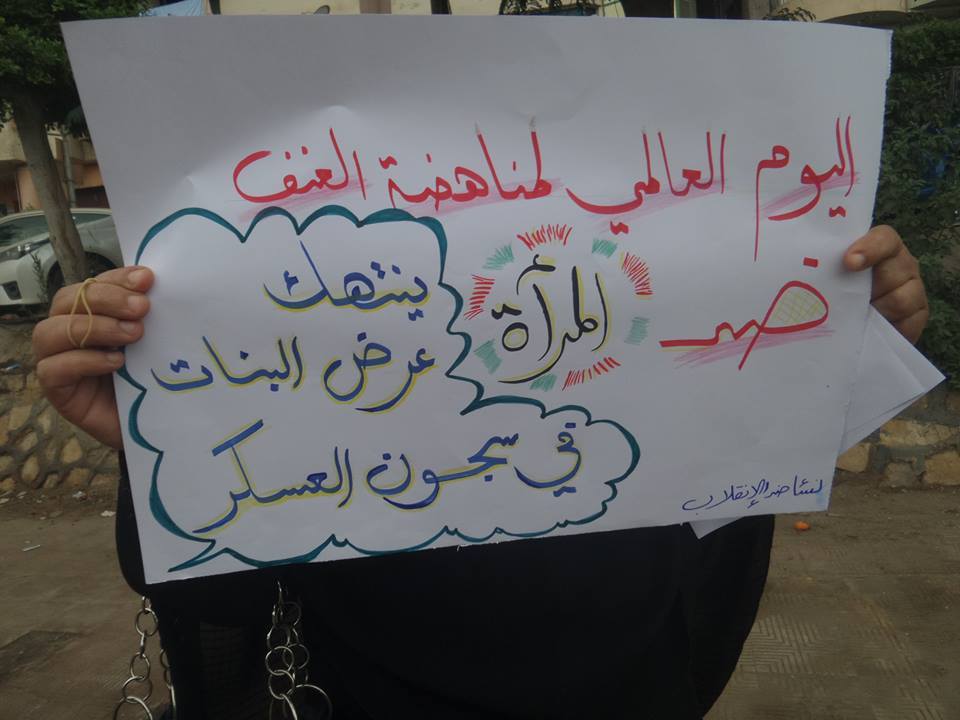 اليوم العالمي لمناهضة العنف
ضد المرأة
ينتهك
عرض البنات
في سجون العسكر
نساء ضد الإنقلاب